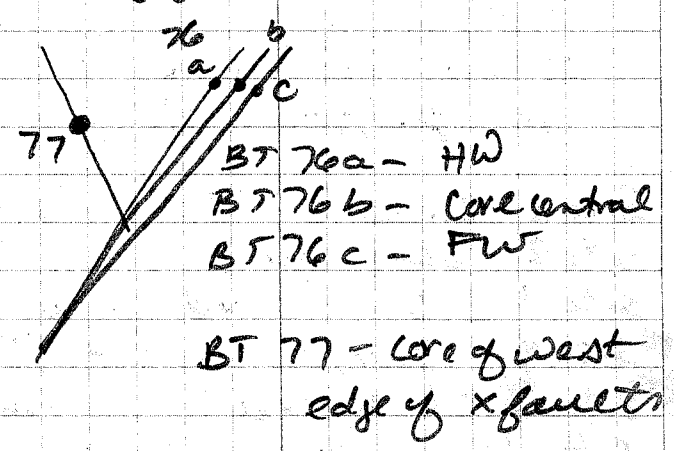 76
b
a
c
77
BT 76a - HW
BT 76b - Core central
BT 76c - FW
BT 77 - core of west
edge of x faults